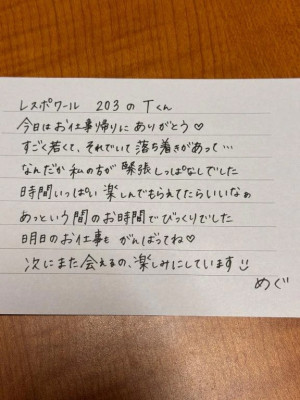 レスポワール 203のTくん
今日はお仕事帰りにありがとう♡
すごく若くて、それでいて落ち着きがあって…
なんだか私の方が緊張しっぱなしでした
時間いっぱい楽しんでもらえてたらいいなぁ
あっという間のお時間でびっくりでした
明日のお仕事もがんばってね♡
次にまた会えるの、楽しみにしています☺
めぐ